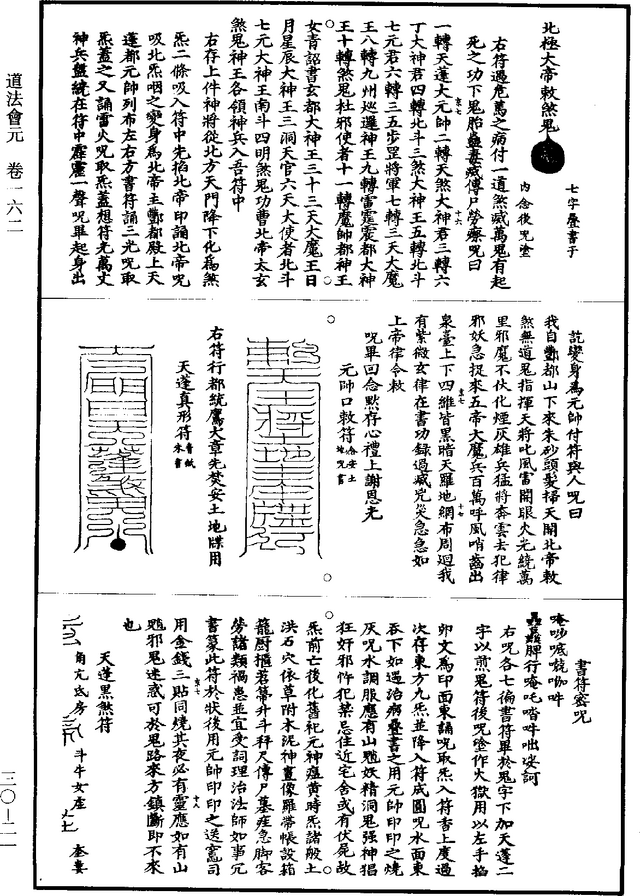 道法會元　卷一六二
三〇-二一
北極大帝敕煞鬼
七字疊書于
內念後呪塗
右符遇危篤之病付一道煞滅萬鬼有起
死之功下鬼胎蠱毒滅傳尸勞瘵呪曰
一轉天蓬大元帥二轉天煞大神君三轉六
丁大神君四轉北斗三煞大神王五轉北斗
七元君六轉三五步罡將軍七轉三天大魔
王八轉九州巡邏神王九轉雷霆震都大神
王十轉煞鬼杜邪使者十一轉魔帥都神王
女青詔書玄都大神王三十三天大魔王日
月星辰大神王三洞天官六天大使者北斗
七元大神王南斗四明煞鬼功曹北帝太玄
煞鬼神王各領神兵入吾符中
右存上件神將從北方天門降下化為煞
炁二條吸入符中先掐北帝印誦北帝呪
吸北炁咽之變身為北帝主酆都殿上天
蓬都元帥列布左右方書符誦三光呪取
炁蓋之又誦雷火呪取炁蓋想符光萬丈
神兵盤繞在符中霹靂一聲呪畢起身出
訖變身為元帥付符與人呪曰
我自酆都山下來朱砂頭髮掃天開北帝敕
煞無道鬼指揮天將叱風雷開眼火光繞萬
里邪魔不伏化煙灰雄兵猛將奔雲去犯律
邪妖急捉來五帝大魔兵百萬呼風哨齒出
泉臺上下四維皆黑暗天羅地網布周迴我
有紫微玄律在書功錄過滅兇災急急如
上帝律令敕
呪畢回念默存心禮上謝恩光
元帥口敕符
右符行都統鷹犬章先焚安土地牒用
天蓬真形符
書符密呪
右呪各七徧書符畢於鬼字下加天蓬二
字以煎鬼符後呪塗作火獄用以左手掐
卯文為印面東誦呪取炁入符香上度過
次存東方九炁並降入符咸圓呪水面東
吞下如遇治病疊書之用元帥印印之燒
灰呪水調服應有山魈妖精洞鬼強神猖
狂奸邪忤犯禁忌住近宅舍或有伏屍故
炁前亡後化舊祀元神瘟黃時炁諸般土
洪石穴依草附木泥神畫像羅帶帳設箱
籠廚櫃若箒升斗秤尺傳尸墓痓急脚客
勞諸類禍患並宜受詞理治法師如事冗
書篆此符於狀後用元帥印印之送憲司
用金錢三貼同燒其夜必有靈應如有山
魈邪鬼迷惑可於鬼路來方鎮斷即不來
也
天蓬黑煞符
角亢氐房
斗牛女虛
奎婁